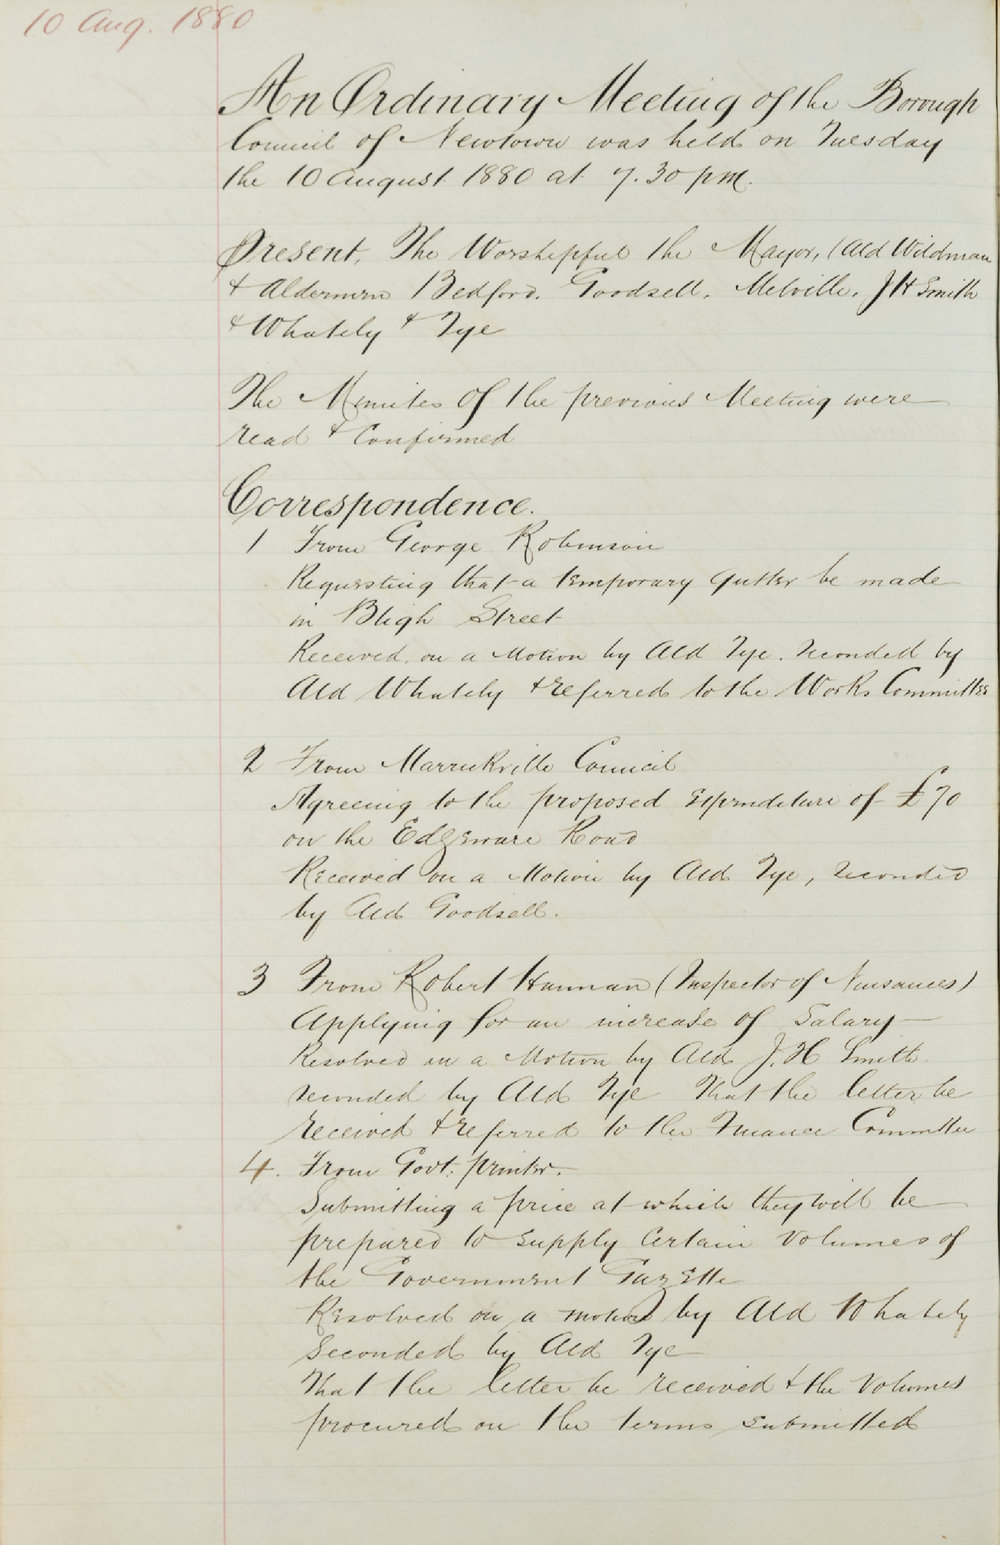 10 Aug. 1880
An Ordinary Meeting of the Borough
Council of Newtown was held on Tuesday
the 10 August 1880 at 7.30 pm.
Present, The Worshipful the Mayor, (Ald Wildman
& Aldermen Bedford. Goodsell. Melville. J H Smith
& Whately & Tye
The Minutes of the previous Meeting were
read & Confirmed
Correspondence.
1 From George Robinson
Requesting that a temporary gutter be made
in Bligh Street
Received on a Motion by Ald Tye. seconded by
Ald Whately & referred to the Works Committee
2 From Marrickville Council
Agreeing to the proposed Expenditure of £70
on the Edgeware Road
Received on a Motion by Ald Tye, seconded
by Ald Goodsell.
3 From Robert Hannan (Inspector of Nuisances)
Applying for an increase of Salary
Resolved on a Motion by Ald J. H Smith
seconded by Ald Tye That the letter be
received & referred to the Finance Committee
4. From Govt. printer.
Submitting a price at which they will be
prepared to supply Certain Volumes of
the Government Gazette
Resolved on a motion by Ald Whately
Seconded by Ald Tye
That the letter be received & the Volumes
procured on the terms submitted